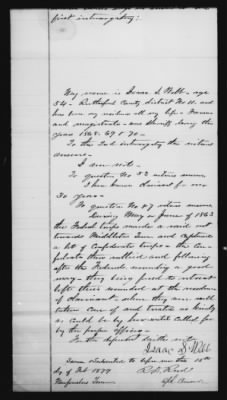 first interrogatory:
My name is Isaac S. Webb - age
54 - Rutherford County district No 11. and
has been my residence all my life - Farmer
and magistrate - was Sheriff during the
years 1868. 69 & 70 -
To the 2nd interrogatory the witness
answers -
I am not -
To question No 52 witness answers
I have known claimant for over
30 years -
To question No 47 witness answers
during May or June of 1863
the Federal troops made a raid out
towards Middleton Tenn and captured
a lot of Confederate troops - the Con-
federates then rallied and followed
after the Federals wounding a good
many - they being forced to retreat
left their wounded at the residence
of claimant - where they were well
taken care of and treated as kindly
as could be by him until called for
by the proper officers -
Further deponent saith not
Isaac S. Webb
Sworn & subscribed to before me this 15th
day of Feb 1877
Murfreesboro Tenn